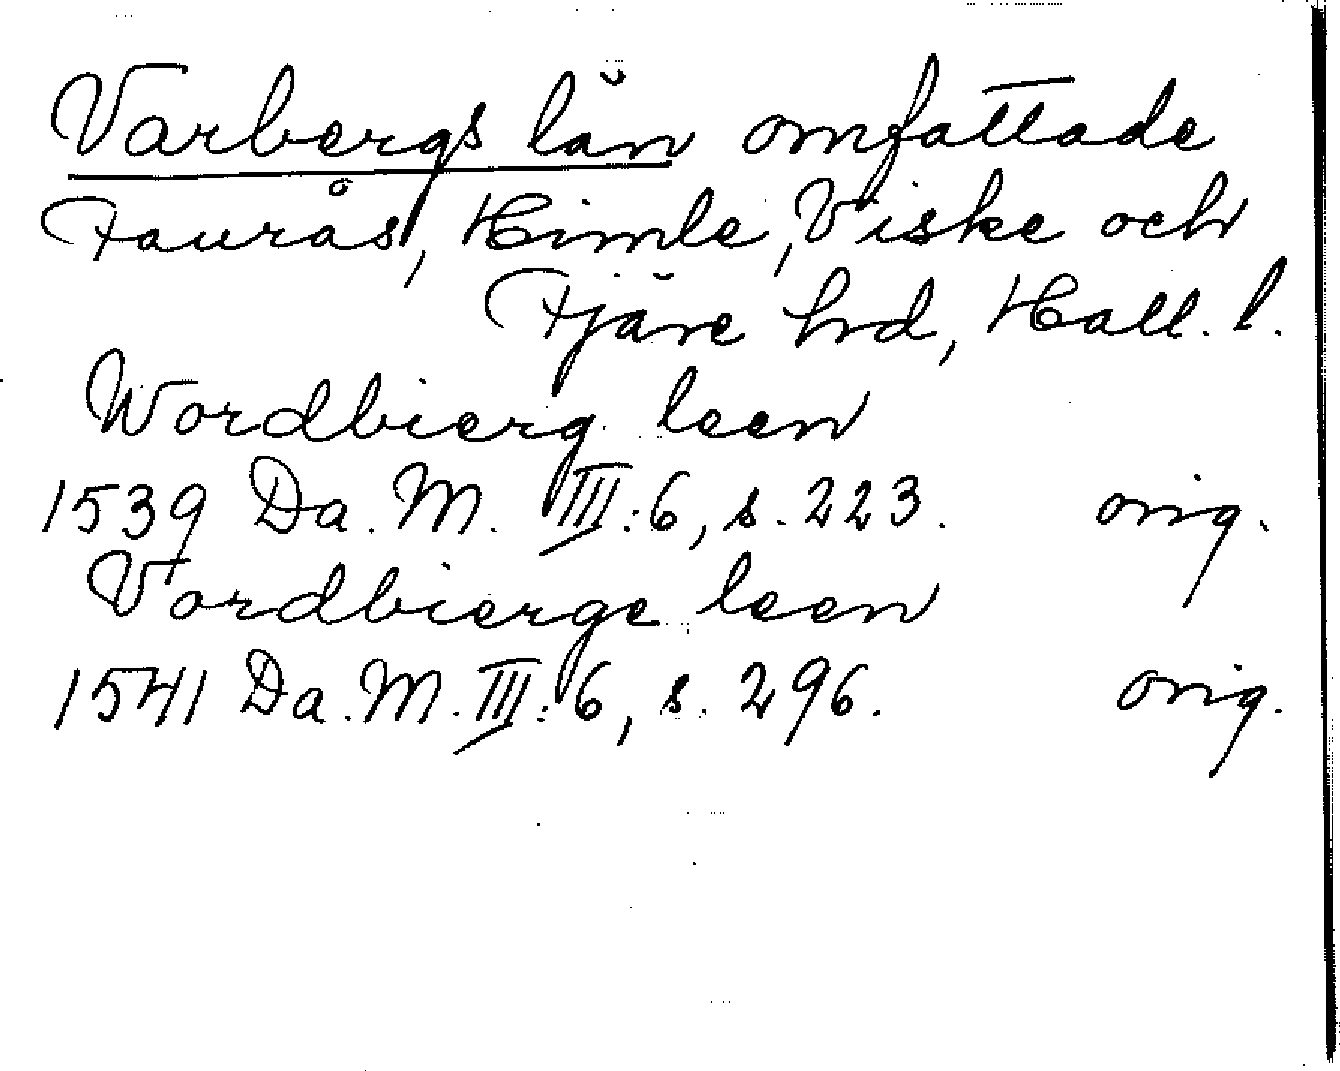 Varbergs län omfattade
Faurås, Himle, Viske och
Fjäre hrd, Hall. l.
Wordbierg leen
1539 Da. M. III:6, s. 223. orig.
Vordbierge leen
1541 Da. M. III:6, s. 296. orig.